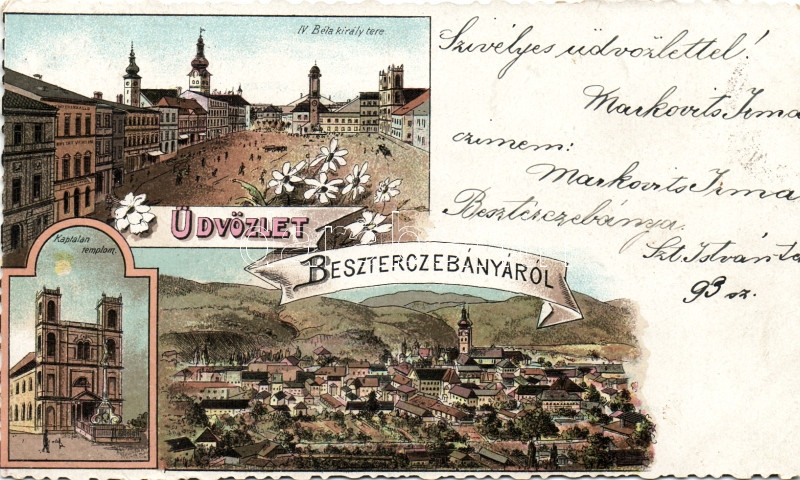 IV. Béla király tere.
Szivélyes üdvözlettel!
Markovits Irma
czimem:
Markovits Irma
Beszterczebánya.
Szt. István tér
93 sz.
ÜDVÖZLET
BESZTERCZEBÁNYÁRÓL
Kaptalan
templom.